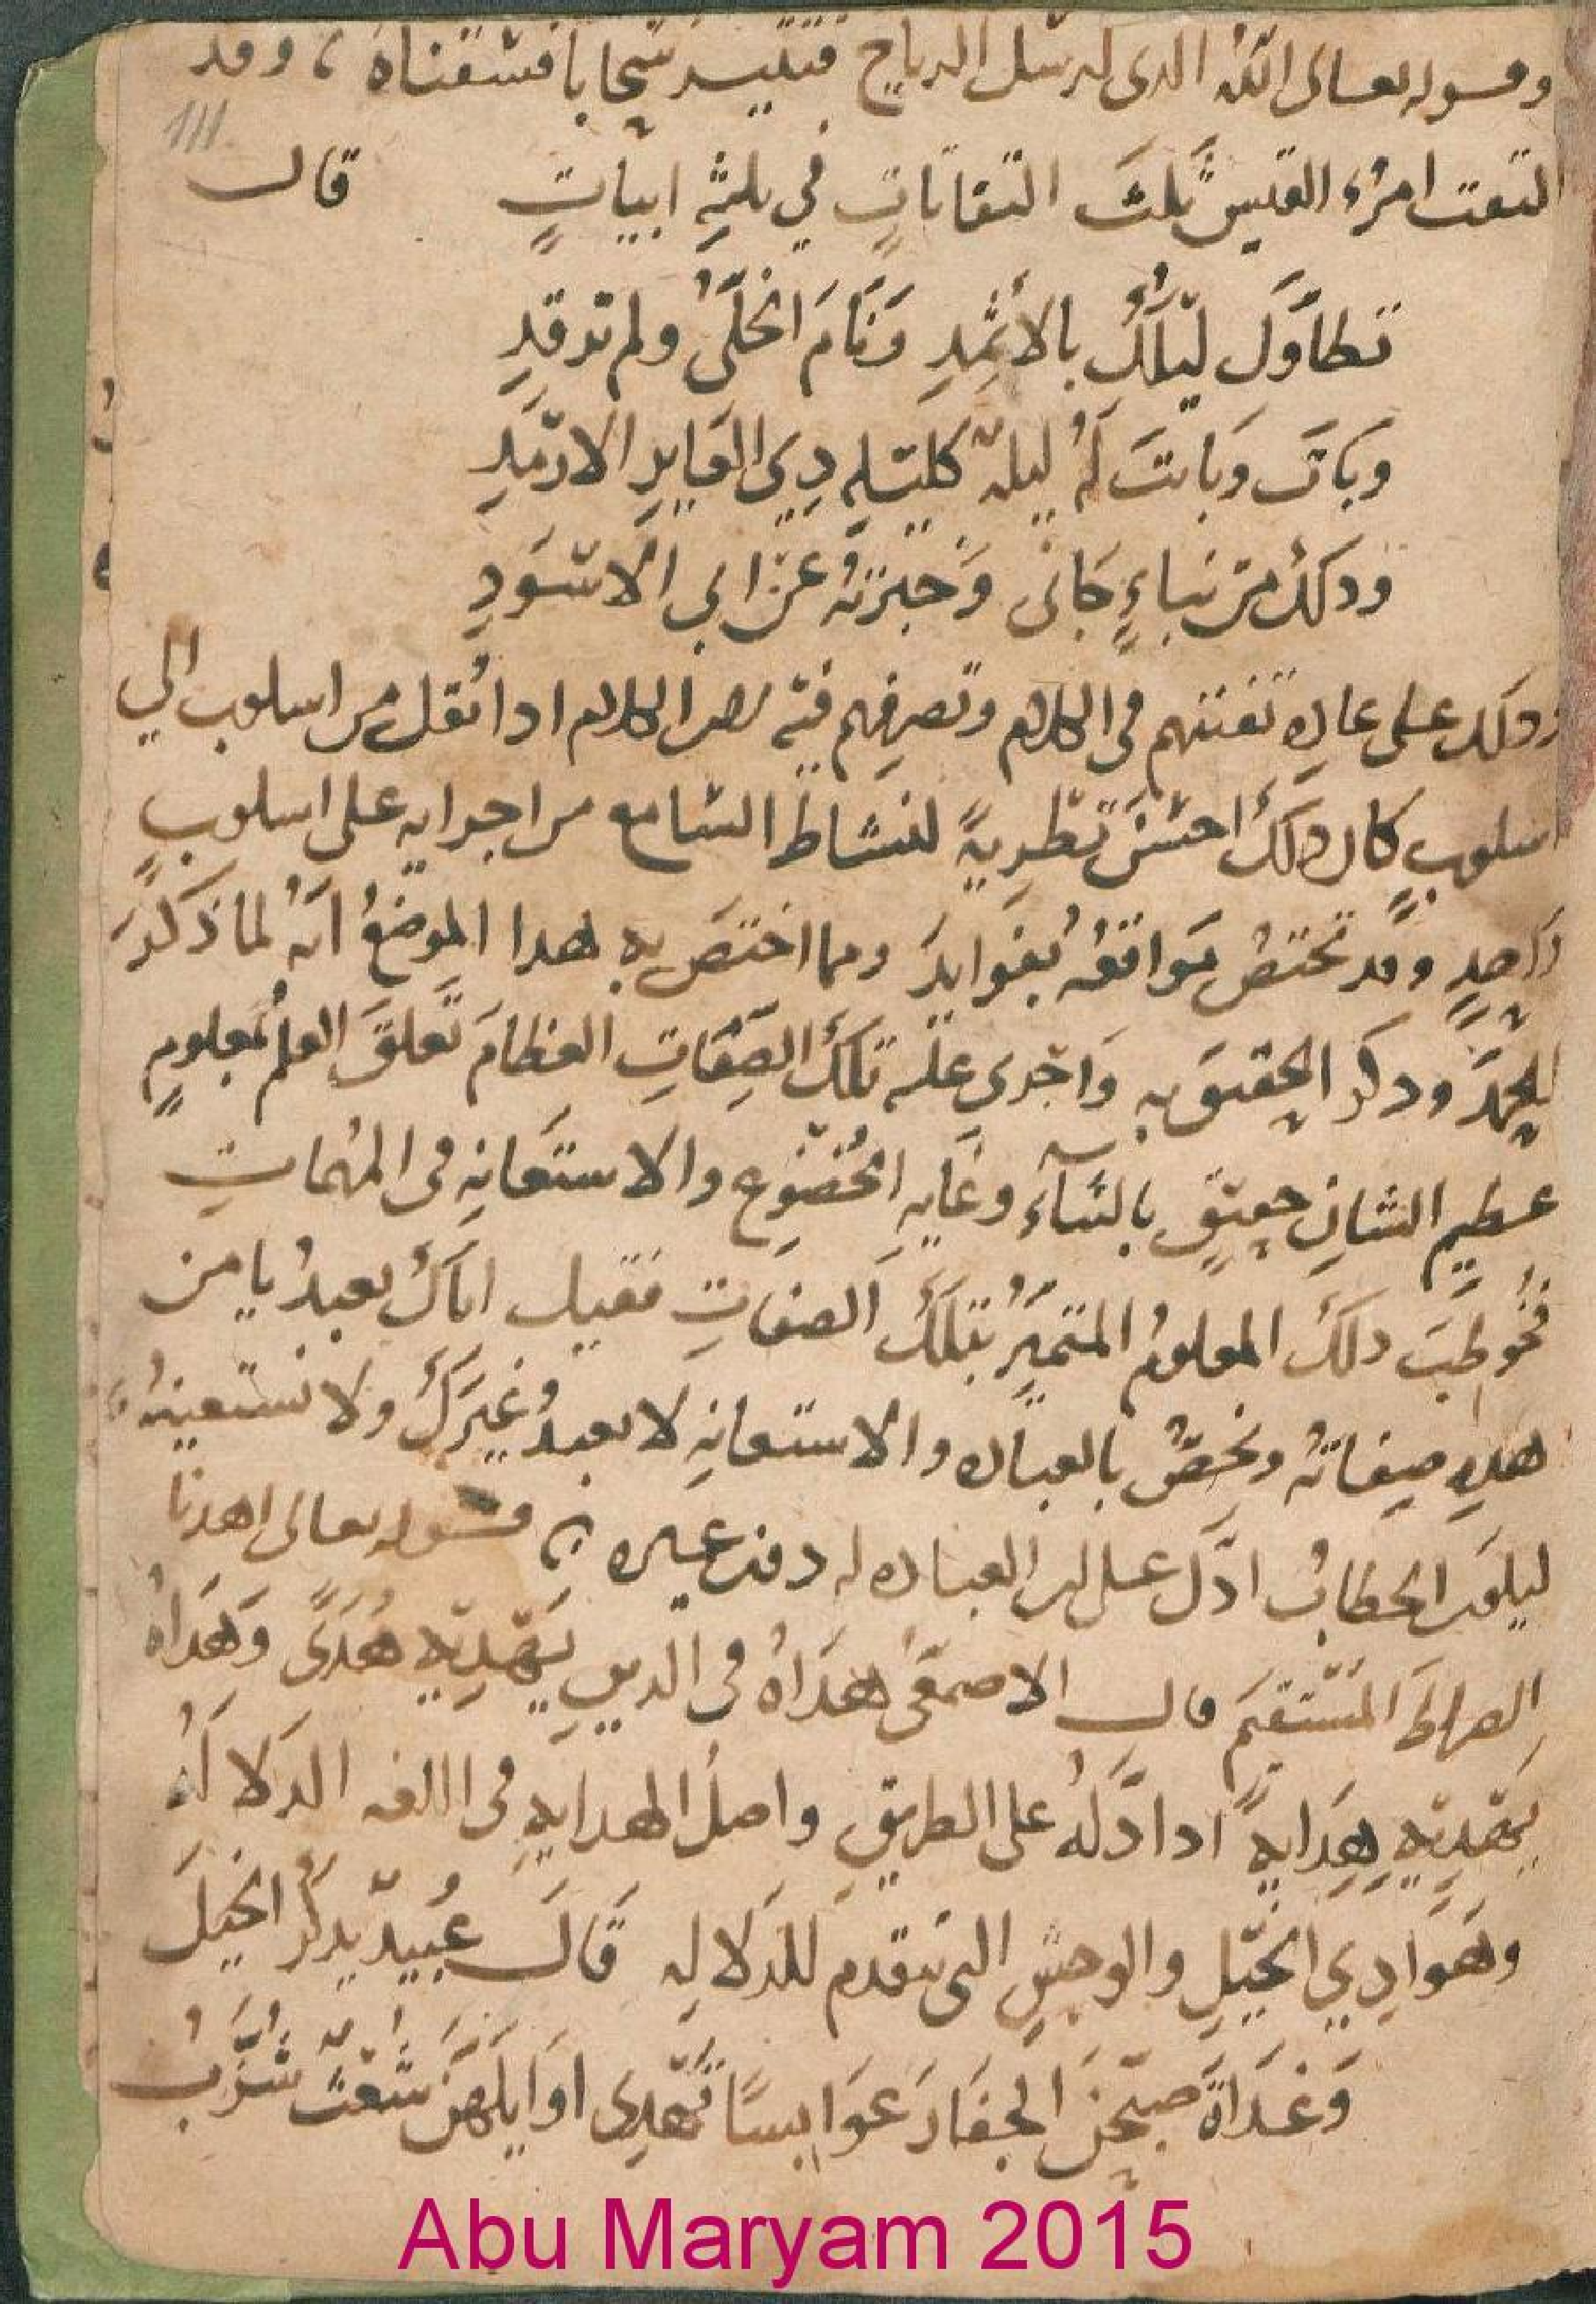 وقوله تعالى الله الذى ارسل الرياح فتثير سحابا فسقناه ، وقد
111
التفت امرء القيس ثلثَ التفاتاتٍ في ثلثةِ ابياتٍ قال
تطاوَل ليلكُ بالأثمِدِ وَنَامَ الخلىُّ ولم ترقدِ
وبَاتَ وبَاتتَ لَهُ ليلة كليلةِ ذِي العَايرِ الارْمَدِ
وَذلكَ مِن نباءٍ جَانى وَخبرتهُ عَن ابي الاسْوَدِ
وذلك على عاده تفننهم فى الكلام وتصرفِهم فيْه لان الكلام اذا نُقل من اسلوب الي
اسلوبٍ كان ذلكَ احسَن تطْرِيةً لنشاط السَامع من اجرايه على اسلوبٍ
وَاحدٍ وقد تختصُ مَواقعُه بفوايدَ ومما اختصَ به هدا الموضعُ انّهُ لما ذَكرَ
الحَمدَ وذكر الحقيقَ به وَاجْري عليْه تلكَ الصِفَاتِ العظامَ تَعلقَ العلمُ بمعلومٍ
عظيمِ الشانِ حقيقٍ بالثنآءِ وغَايهِ الخُضوعِ والاستعَانهِ فى المهُمَاتِ
فخُوطبَ ذلكَ المعلومُ المتميّزُ بتلكَ الصفاتِ فقيل اياكَ نعبدُ يا من
هَذِهِ صِفاتهُ ونخصُّ بالعباده والاستعانهِ لا نعبدُ غيرَكَ ولا نستعينهُ ،
ليكونَ الخطابُ ادَلَّ على ان العباده له دون غيره ن قوله تعالى اهدنا
الصراطَ المسْتقيمَ قال الاصمعىُّ هدَاهُ فى الدينِ يَهْدِيْهِ هُدىً وَهَدَاهُ
يَهْدِيْهِ هِدَايةً اذا دَلَّهُ على الطريقِ واصلُ الهدايهِ فى اللغه الدَلالهُ
وهَوَادِي الخيْلِ والوحشِ التى تتقدم للدَلالهِ قَالَ عُبيدٌ يذكُرُ الخيْلَ
وَغدَاةَ صبّحْنَ الجفَارَ عَوَابسًا تَهْدِى اوَايلَهُنَ شُعْثٌ شُزَّبُ
Abu Maryam 2015